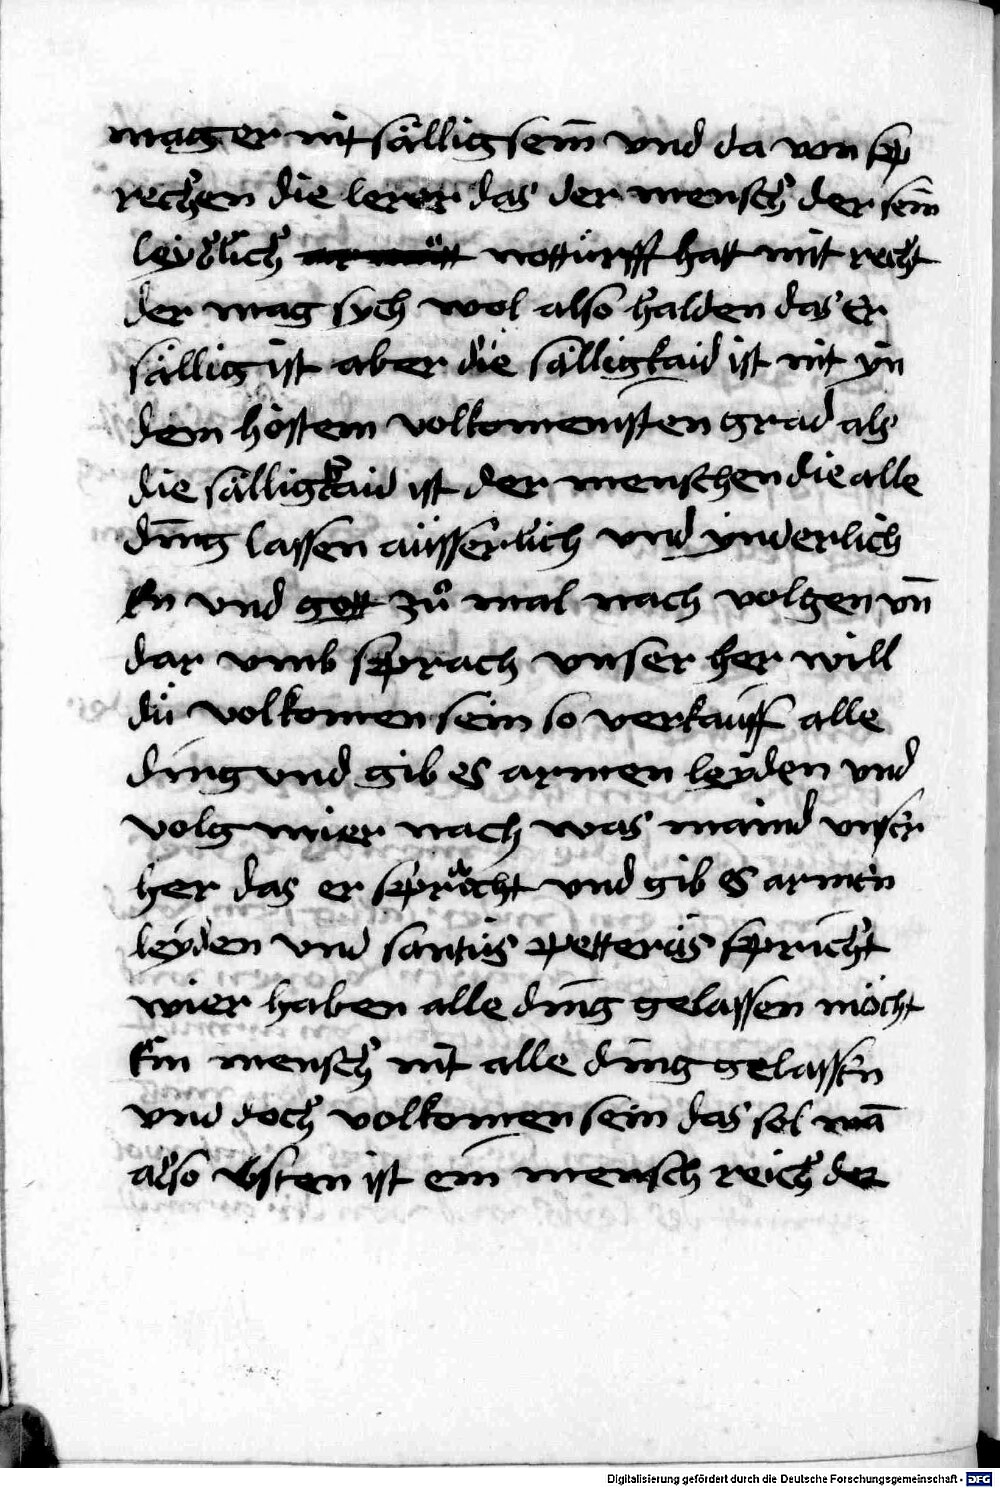 mag er nit sällig sein̄ vnd da von sp
rechen die lerer das der mensch der sein
leyblich nottürfft hatt mit recht
der mag sych wol also halden das er
sällig ist aber die sälligkaid ist nit yn
dem höstem volkomenisten grad als
die sälligkaid ist der menschen die alle
din̄g lassen aüsserlich vnd ynderlich
vnd gott zů mal nach volgen vn̄
dar vmb sprach vnser her will
dü volkomen sein so verkauff alle
ding vnd gib es armen leyden vnd
volg mier nach was maind vnser
her das er spricht vnd gib es armen
leyden vnd santüs petterüs spricht
wier haben alle din̄g gelassen möcht
ein mensch nit alle ding gelassen
vnd doch volkomen sein das sol mā
also ist ein mensch reich der
Digitalisierung gefördert durch die Deutsche Forschungsgemeinschaft - DFG